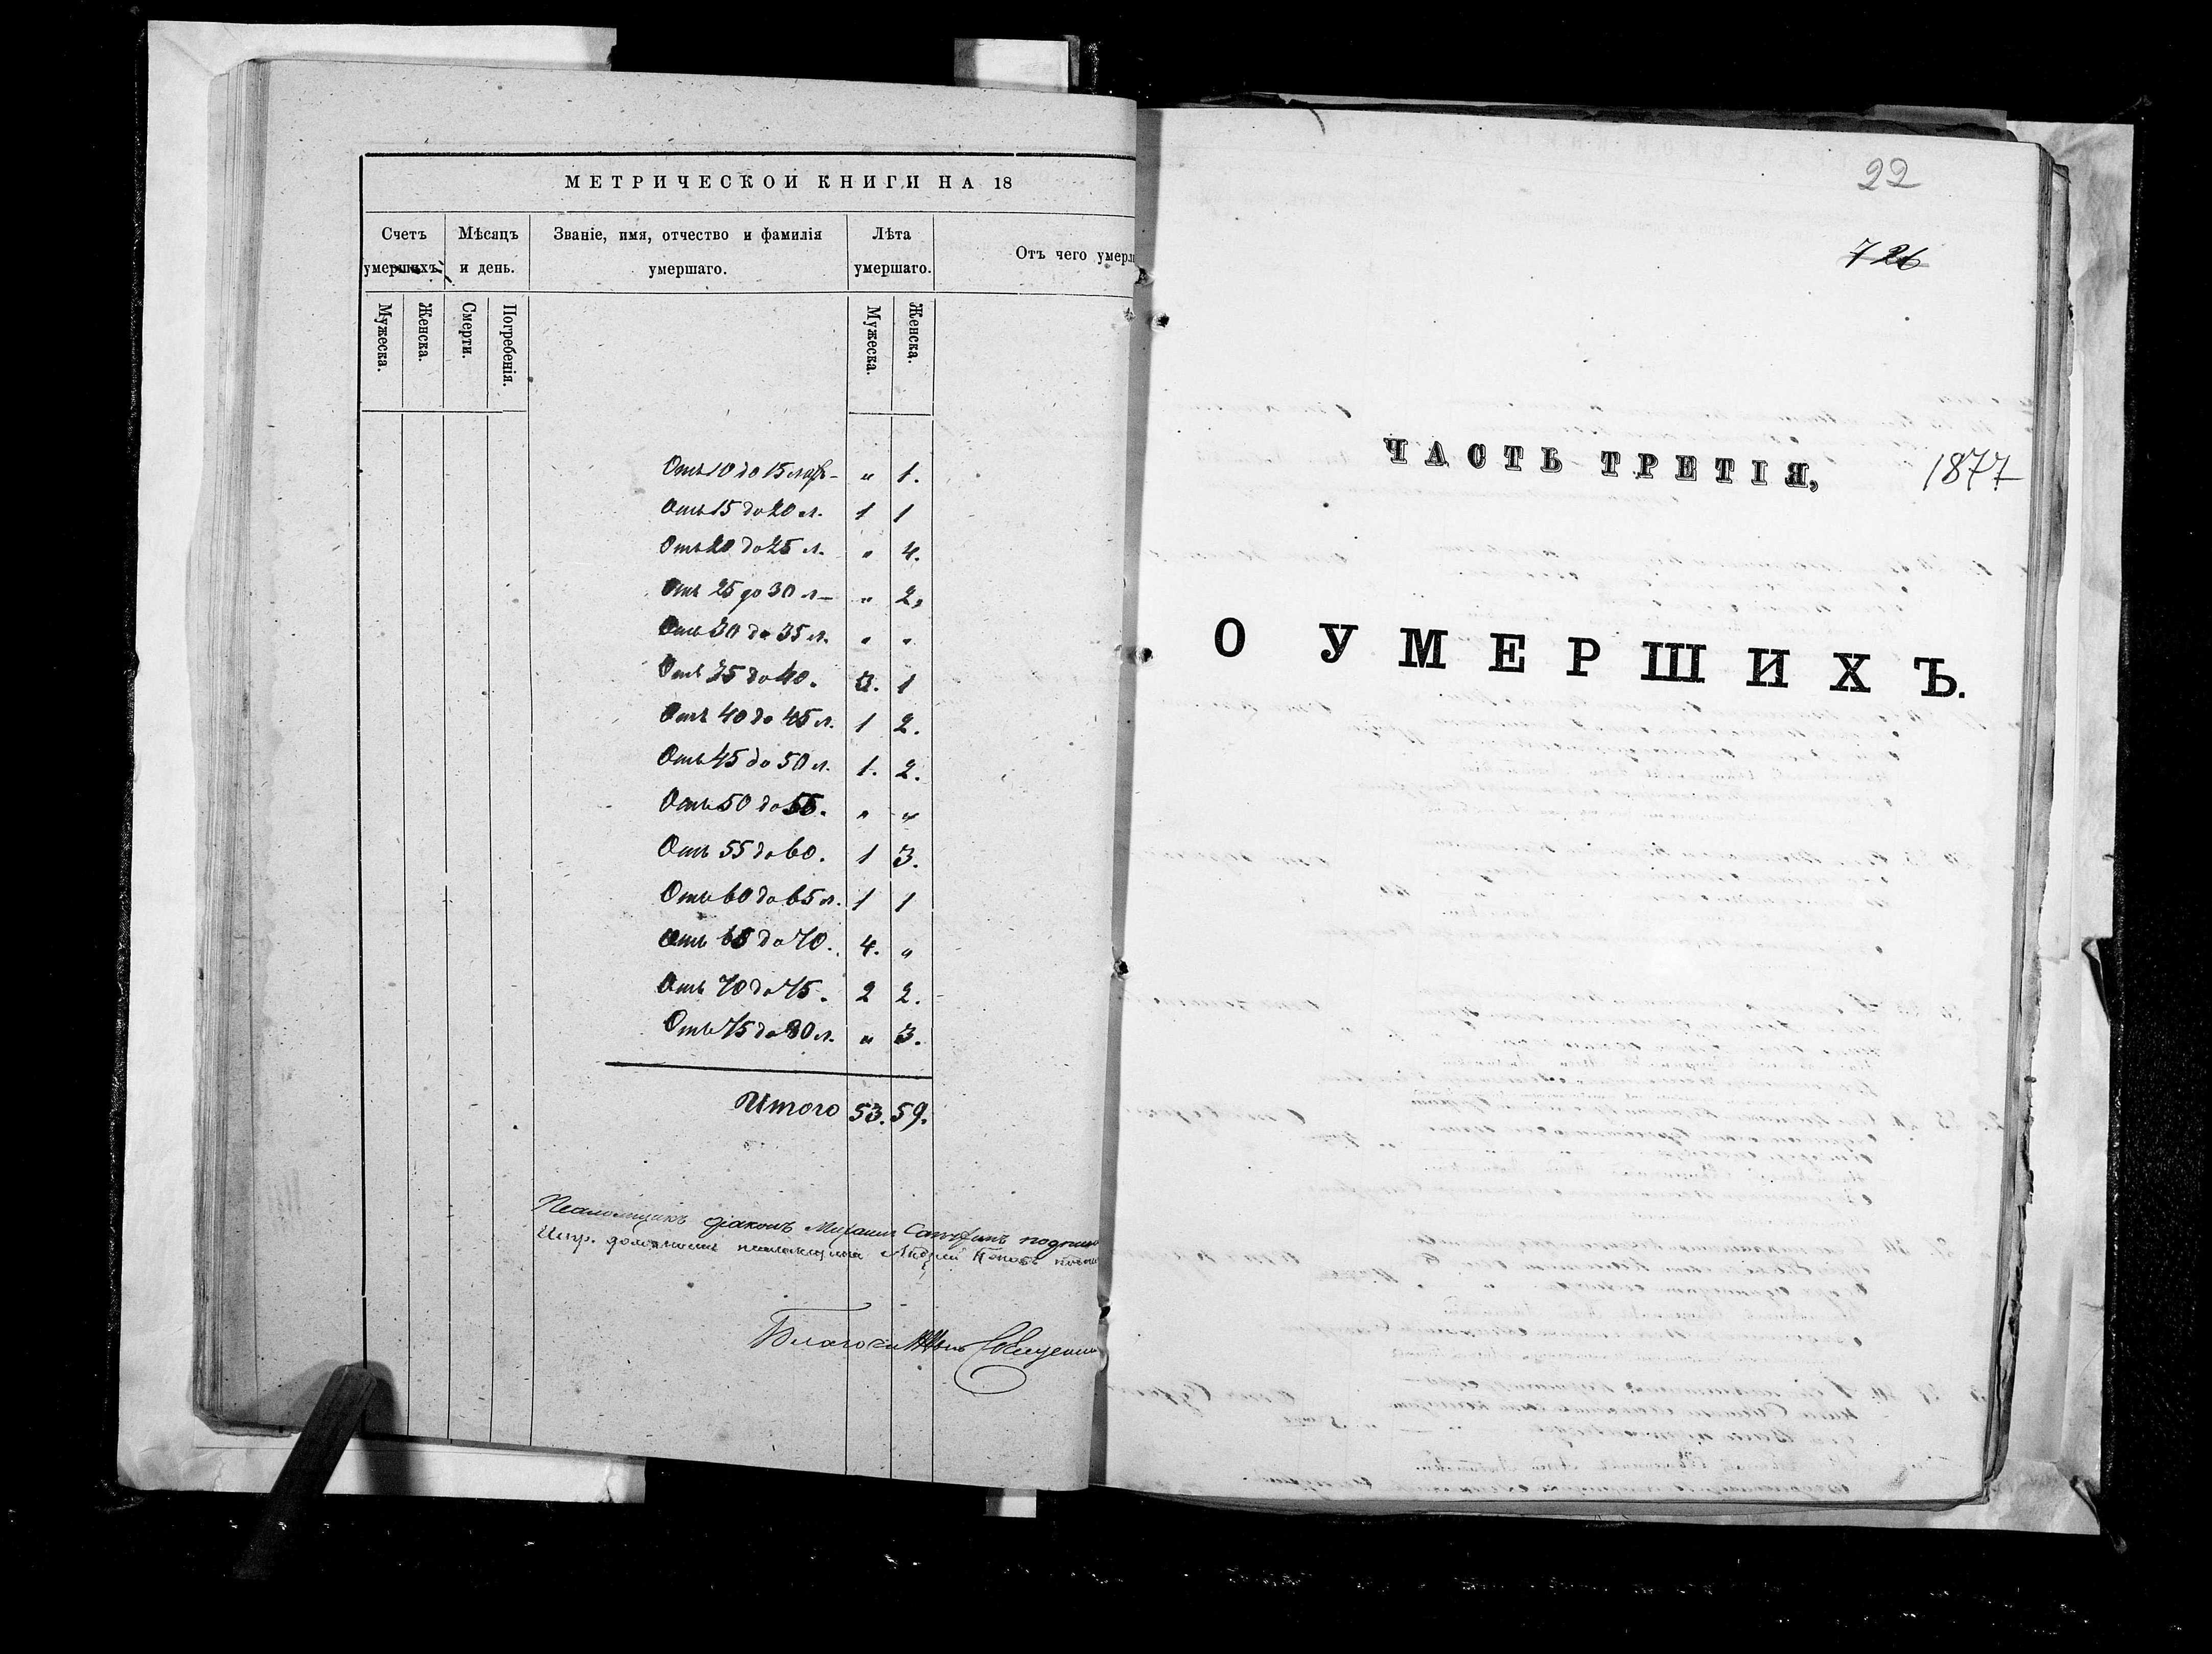 МЕТРИЧЕСКОЙ КНИГИ НА 18
Счетъ умершихъ.
Мѣсяцъ и день.
Званіе, имя, отчество и фамилія умершаго.
Лѣта умершаго.
Отъ чего умерл
Мужеска.
Женска.
Смерти.
Погребенія.
Мужеска.
Женска.
Отъ 10 до 15 лѣтъ - „ 1.
Отъ 15 до 20 л. 1 1
Отъ 20 до 25 л. „ 4.
Отъ 25 до 30 л - „ 2.
Отъ 30 до 35 л. „ „
Отъ 35 до 40. 3. 1
Отъ 40 до 45 л. 1 2.
Отъ 45 до 50 л. 1. 2.
Отъ 50 до 55. „ „
Отъ 55 до 60. 1 3.
Отъ 60 до 65 л. 1 1
Отъ 65 до 70. 4. „
Отъ 70 до 75. 2 2.
Отъ 75 до 80 л. „ 3.
Итого 53. 59.
Псаломщикъ діаконъ Михаил
Испр. должность псаломщика Андрей Поповъ
22
726
ЧАСТЬ ТРЕТІЯ, 1877
О УМЕРШИХЪ.